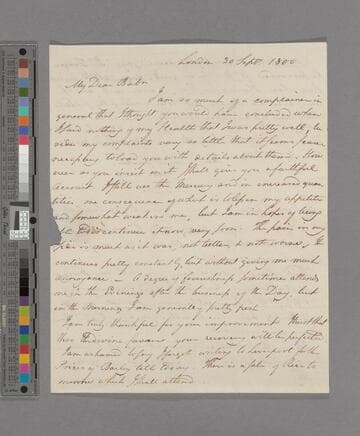 London 30 Sept. 1800
My Dear
I am so much of a complainer in
general that I thought you would have concluded when
I said nothing of my Health that I was pretty well, be
sides my complaints vary so little that it seems
to load you with details about them. How
ever as you insist on it I shall give you a faithful
account. I still use the Mercury and in increased quan
tities, one consequence of which is to lessen my appetite
and somewhat weaken me, but I am in hopes of being
able to discontinue it now very soon. The pain in my
side is much as it was, not better, & not worse, it
continues pretty constantly, but without giving me much
annoyance — A degree of feverishness sometimes attends
me in the Evenings after the business of the Day, but
in the Mornings I am generally pretty fresh
I am truly thankful for your improvement. I trust that
thro' Providence your recovery will be perfected
I am ashamed to say I forgot writing to Liverpool for the
Prices of Barley till to day. There is a Sale of Rice to
morrow which I shall attend